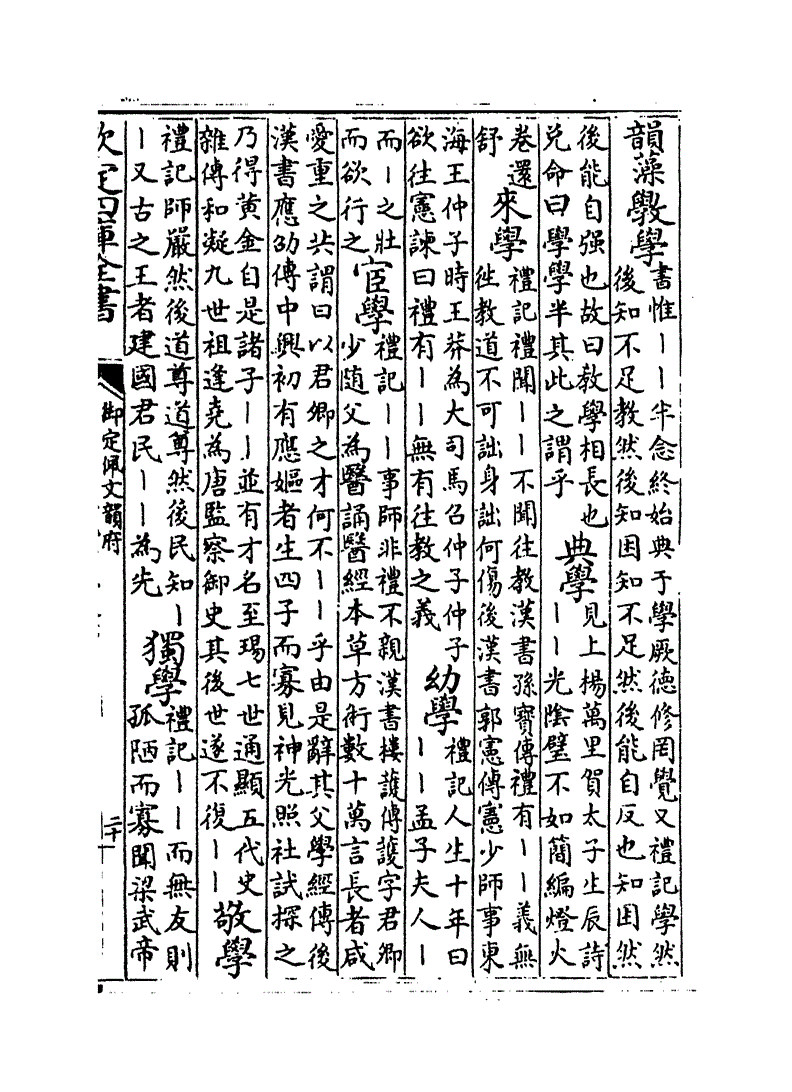 韻藻斆學
書惟丨丨半念終始典于學厥德修罔覺又禮記學然
後知不足教然後知困知不足然後能自反也知困然
後能自强也故曰教學相長也
兌命曰學學半其此之謂乎
典學
見上楊萬里賀太子生辰詩
丨丨光陰璧不如簡編燈火
卷還
舒
來學
禮記禮聞丨丨不聞往教漢書孫寶傳禮有丨丨義無
往教道不可詘身詘何傷後漢書郭憲傳憲少師事東
海王仲子時王莽為大司馬召仲子仲子
欲往憲諫曰禮有丨丨無有往教之義
幼學
禮記人生十年曰
丨丨孟子夫人丨
而丨之壯
而欲行之
宦學
禮記丨丨事師非禮不親漢書樓護傳護字君卿
少隨父為醫誦醫經本草方術數十萬言長者咸
愛重之共謂曰以君卿之才何不丨丨乎由是辭其父學經傳後
漢書應劭傳中興初有應嫗者生四子而寡見神光照社試探之
乃得黄金自是諸子丨丨並有才名至瑒七世通顯五代史
雜傳和凝九世祖逢堯為唐監察御史其後世遂不復丨丨
敬學
禮記師嚴然後道尊道尊然後民知丨
丨又古之王者建國君民丨丨為先
獨學
禮記丨丨而無友則
孤陋而寡聞梁武帝
欽定四庫全書
御定佩文韻府
二十